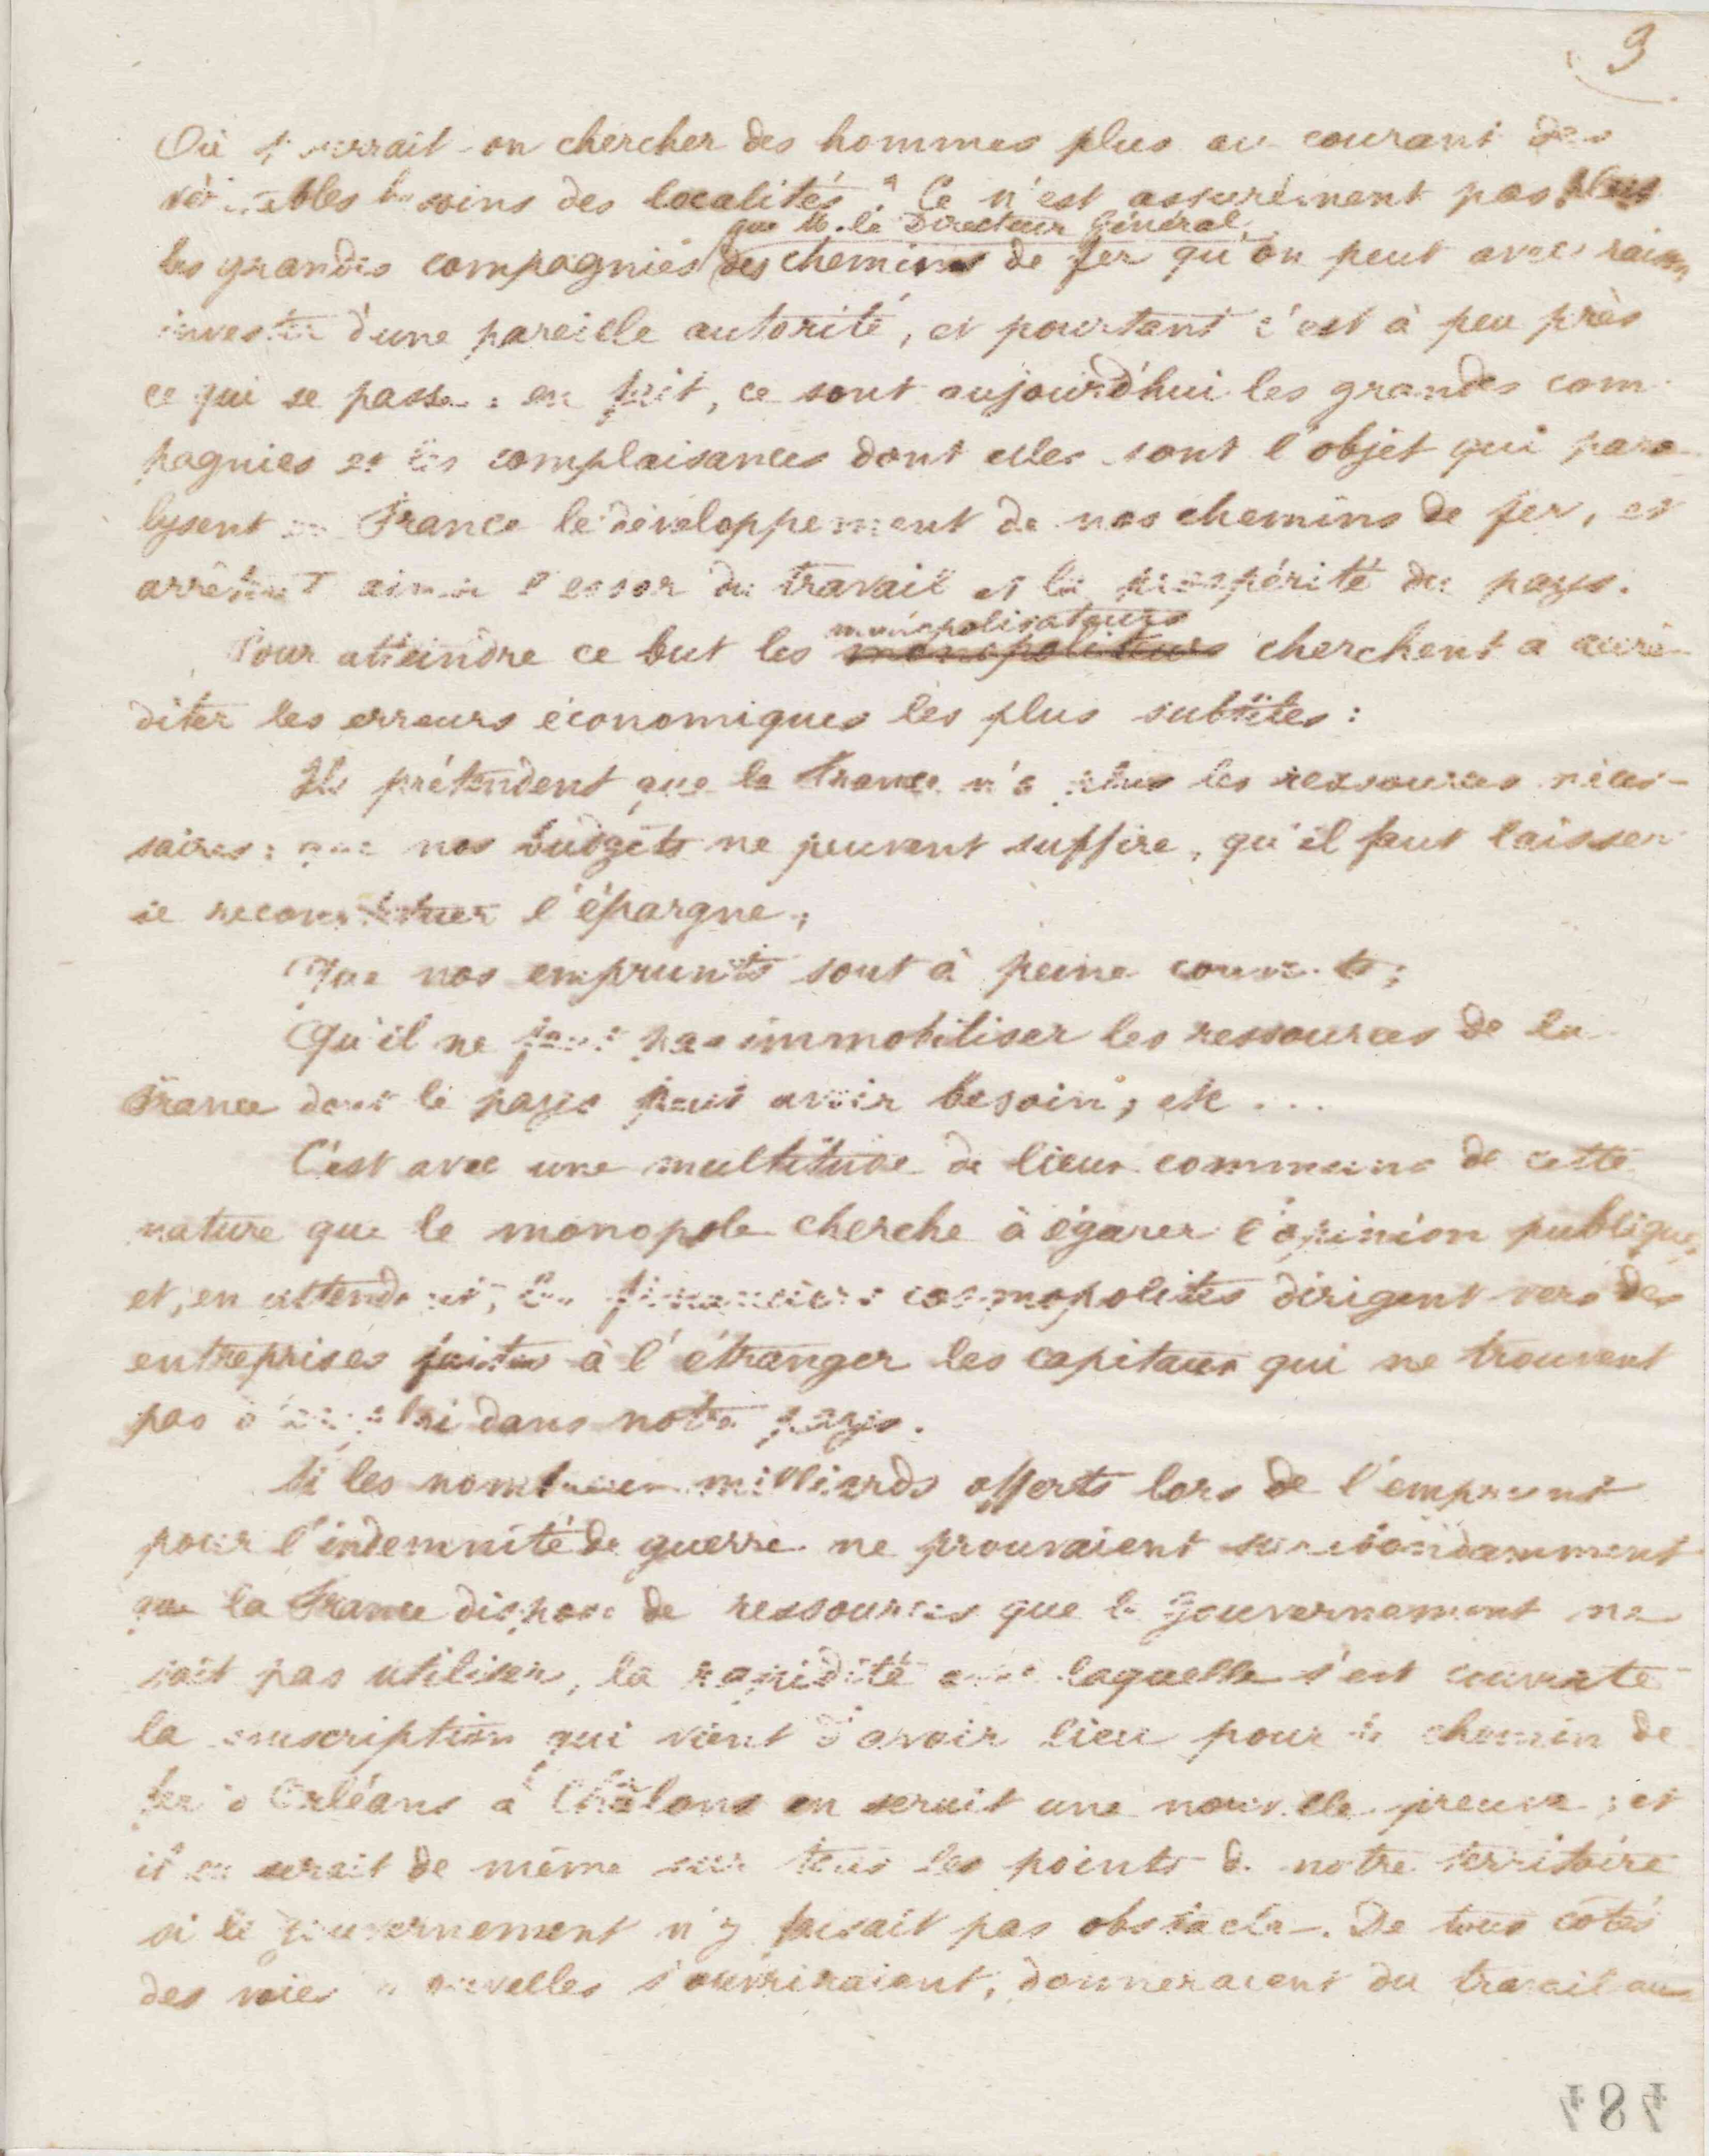 9
Où pourrait-on chercher des hommes plus au courant des
véritables besoins des localités ? Ce n'est assurément pas plus
que M. le Directeur Général
les grandes compagnies des chemins de fer qu'on peut avec raison
investir d'une pareille autorité, et pourtant c'est à peu près
ce qui se passe : en fait, ce sont aujourd'hui les grandes com-
pagnies et les complaisances dont elles sont l'objet qui para-
lysent en France le développement de nos chemins de fer, et
arrêtent ainsi l'essor du travail et la prospérité du pays.
monopolisateurs
Pour atteindre ce but les cherchent à accré-
diter les erreurs économiques les plus subtiles :
Ils prétendent que la France n'a plus les ressources néces-
saires : que nos budgets ne peuvent suffire, qu'il faut laisser
se reconstituer l'épargne ;
Que nos emprunts sont à peine couverts ;
Qu'il ne faut pas immobiliser les ressources de la
France dont le pays peut avoir besoin, etc ...
C'est avec une multitude de lieux communs de cette
nature que le monopole cherche à égarer l'opinion publique,
et, en attendant, les financiers cosmopolites dirigent vers des
entreprises faites à l'étranger les capitaux qui ne trouvent
pas d'emploi dans notre pays.
Si les nombreux milliards offerts lors de l'emprunt
pour l'indemnité de guerre ne prouvaient surabondamment
que la France dispose de ressources que le gouvernement ne
sait pas utiliser, la rapidité avec laquelle s'est couverte
la souscription qui vient d'avoir lieu pour le chemin de
fer d'Orléans à Châlons en serait une nouvelle preuve ; et
il en serait de même sur tous les points de notre territoire
si le gouvernement n'y faisait pas obstacle. De tous côtés
des voies nouvelles s'ouvriraient, donneraient du travail aux
484